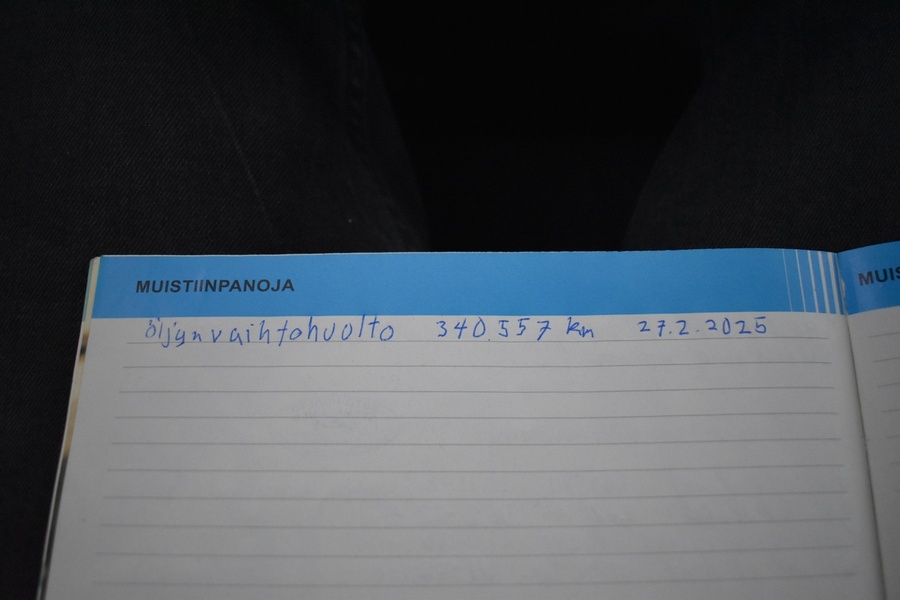 MUISTIINPANOJA
öljynvaihtohuolto 340.557 km 27.2.2025
MUIS